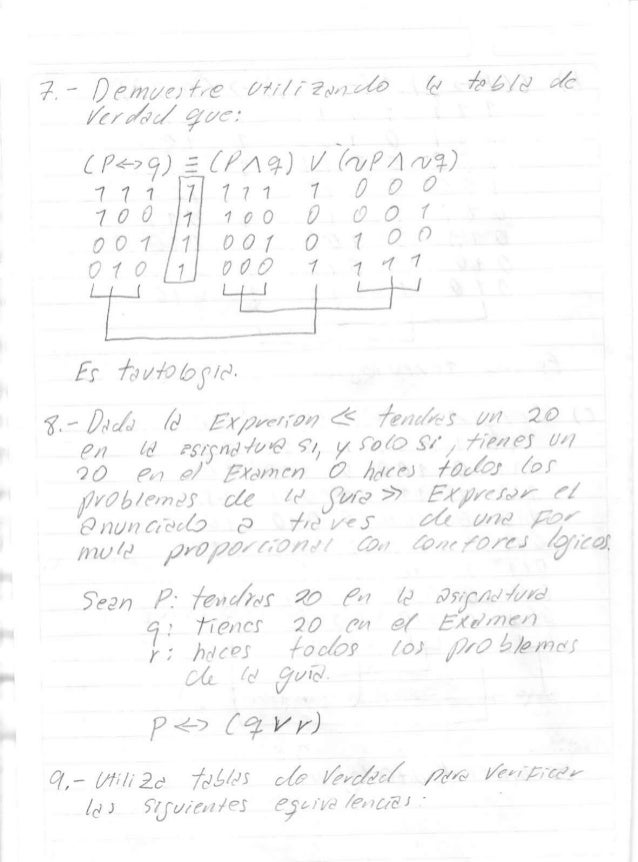 7.- Demuestre utilizando la tabla de
Verdad que:
(P<->q) ≡ (P∧q) ∨ (~P∧~q)
1 1 1 1 1 1 1 1 0 0 0
1 0 0 1 1 0 0 0 0 0 1
0 0 1 1 0 0 1 0 1 0 0
0 1 0 1 0 0 0 1 1 1 1
Es tautologia.
8.- Dada la Expresion << tendras un 20
en la asignatura si, y solo si, tienes un
20 en el Examen O haces todos los
problemas de la guia >> Expresar el
enunciado a traves de una For
mula proporcional con conectores logicos.
Sean P: tendras 20 en la asignatura
q: tienes 20 en el Examen
r: haces todos los problemas
de la guia.
P <-> (q ∨ r)
9.- Utiliza tablas de Verdad para Verificar
las siguientes equivalencias: